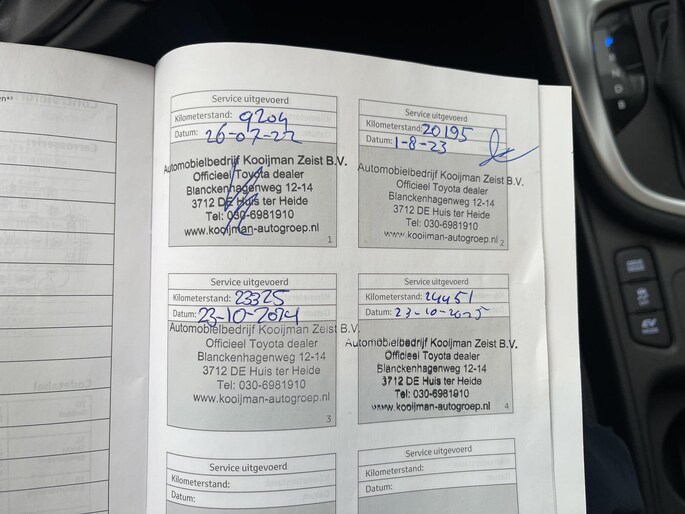 Service uitgevoerd
Kilometerstand: 9204
Datum: 26-07-22
Automobielbedrijf Kooijman Zeist B.V.
Officieel Toyota dealer
Blanckenhagenweg 12-14
3712 DE Huis ter Heide
Tel: 030-6981910
www.kooijman-autogroep.nl
1
Service uitgevoerd
Kilometerstand: 20195
Datum: 1-8-23
Automobielbedrijf Kooijman Zeist B.V.
Officieel Toyota dealer
Blanckenhagenweg 12-14
3712 DE Huis ter Heide
Tel: 030-6981910
www.kooijman-autogroep.nl
2
Service uitgevoerd
Kilometerstand: 23325
Datum: 23-10-2024
Automobielbedrijf Kooijman Zeist B.V.
Officieel Toyota dealer
Blanckenhagenweg 12-14
3712 DE Huis ter Heide
Tel: 030-6981910
www.kooijman-autogroep.nl
3
Service uitgevoerd
Kilometerstand: 24451
Datum: 23-10-2025
Automobielbedrijf Kooijman Zeist B.V.
Officieel Toyota dealer
Blanckenhagenweg 12-14
3712 DE Huis ter Heide
Tel: 030-6981910
www.kooijman-autogroep.nl
4
Service uitgevoerd
Kilometerstand:
Datum:
Service uitgevoerd
Kilometerstand:
Datum:
N
D
B
EV
MODE